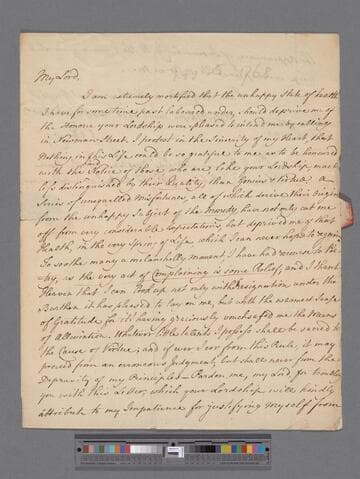 My Lord,
I am extremely mortified that the unhappy State of Health
I have for some time past laboured under, should deprive me of
the Honour your Lordship were pleased to intend me by calling
in Newman Street. I protest in the Sincerity of my Heart, that
Nothing in this Life could be so grateful to me as to be honoured
with the Notice of those who are, like your Lordship, much
less distinguished by their Quality, than Genius & Virtue. A
Series of unequalled Misfortunes, all of which derive their Origin
from the unhappy Subject of the have not only cut me
off from very considerable Expectations, but deprived me of that
Health, in the very Spring of Life, which I can never hope to regain.
To soothe many a melancholly Moment, I have had recourse to
as the very act of Complaining is some Relief, and I thank
Heaven that I can look up not only with Resignation under the
Burthen it has pleased to lay on me, but with the warmest Sense
of Gratitude for it's having graciously vouchsafed me the Means
of Alleviation. Whatever little talents I possess shall be sacred to
the Cause of Virtue; and if ever I err from this Rule, it may
proceed from an erroneous Judgment, but shall never from the
Depravity of my Principles — Pardon me, my Lord, for troubling
you with this Letter, which your Lordship will kindly
attribute to my Impatience for justifying myself from